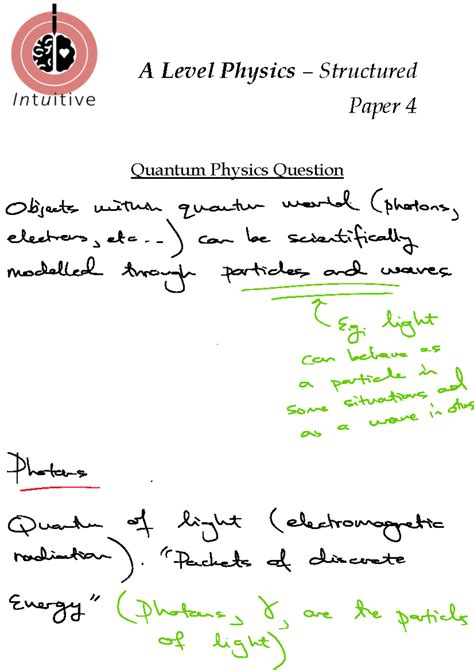 Intuitive
A Level Physics – Structured
Paper 4
Quantum Physics Question
Objects within quantum world (photons,
electrons, etc...) can be scientifically
modelled through particles and waves
E.g. light
can behave as
a particle in
some situations and
as a wave in others
Photons
Quantum of light (electromagnetic
radiation). "Packets of discrete
Energy" (Photons, γ, are the particles
of light)